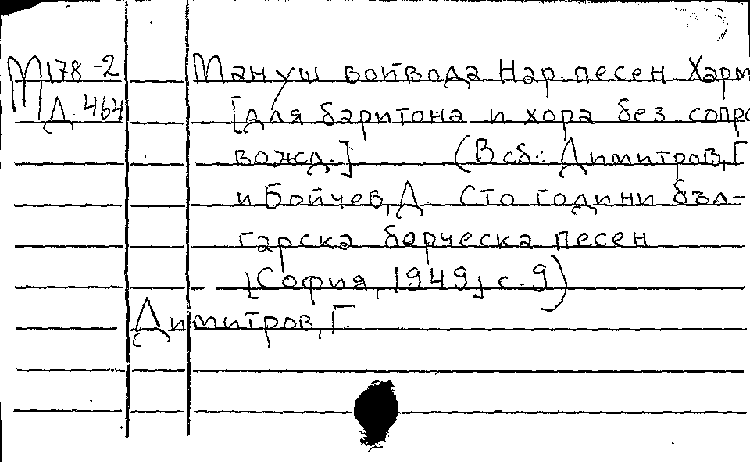 М178-2 Мануш войвода. Нар. песен. Харм
Д.464 [для баритона и хора без сопро
вожд.] (В сб.: Димитров, Г
и Бойчев, Д. Сто години бъл-
гарска борческа песен
[София, 1949] с. 9)
Димитров, Г.